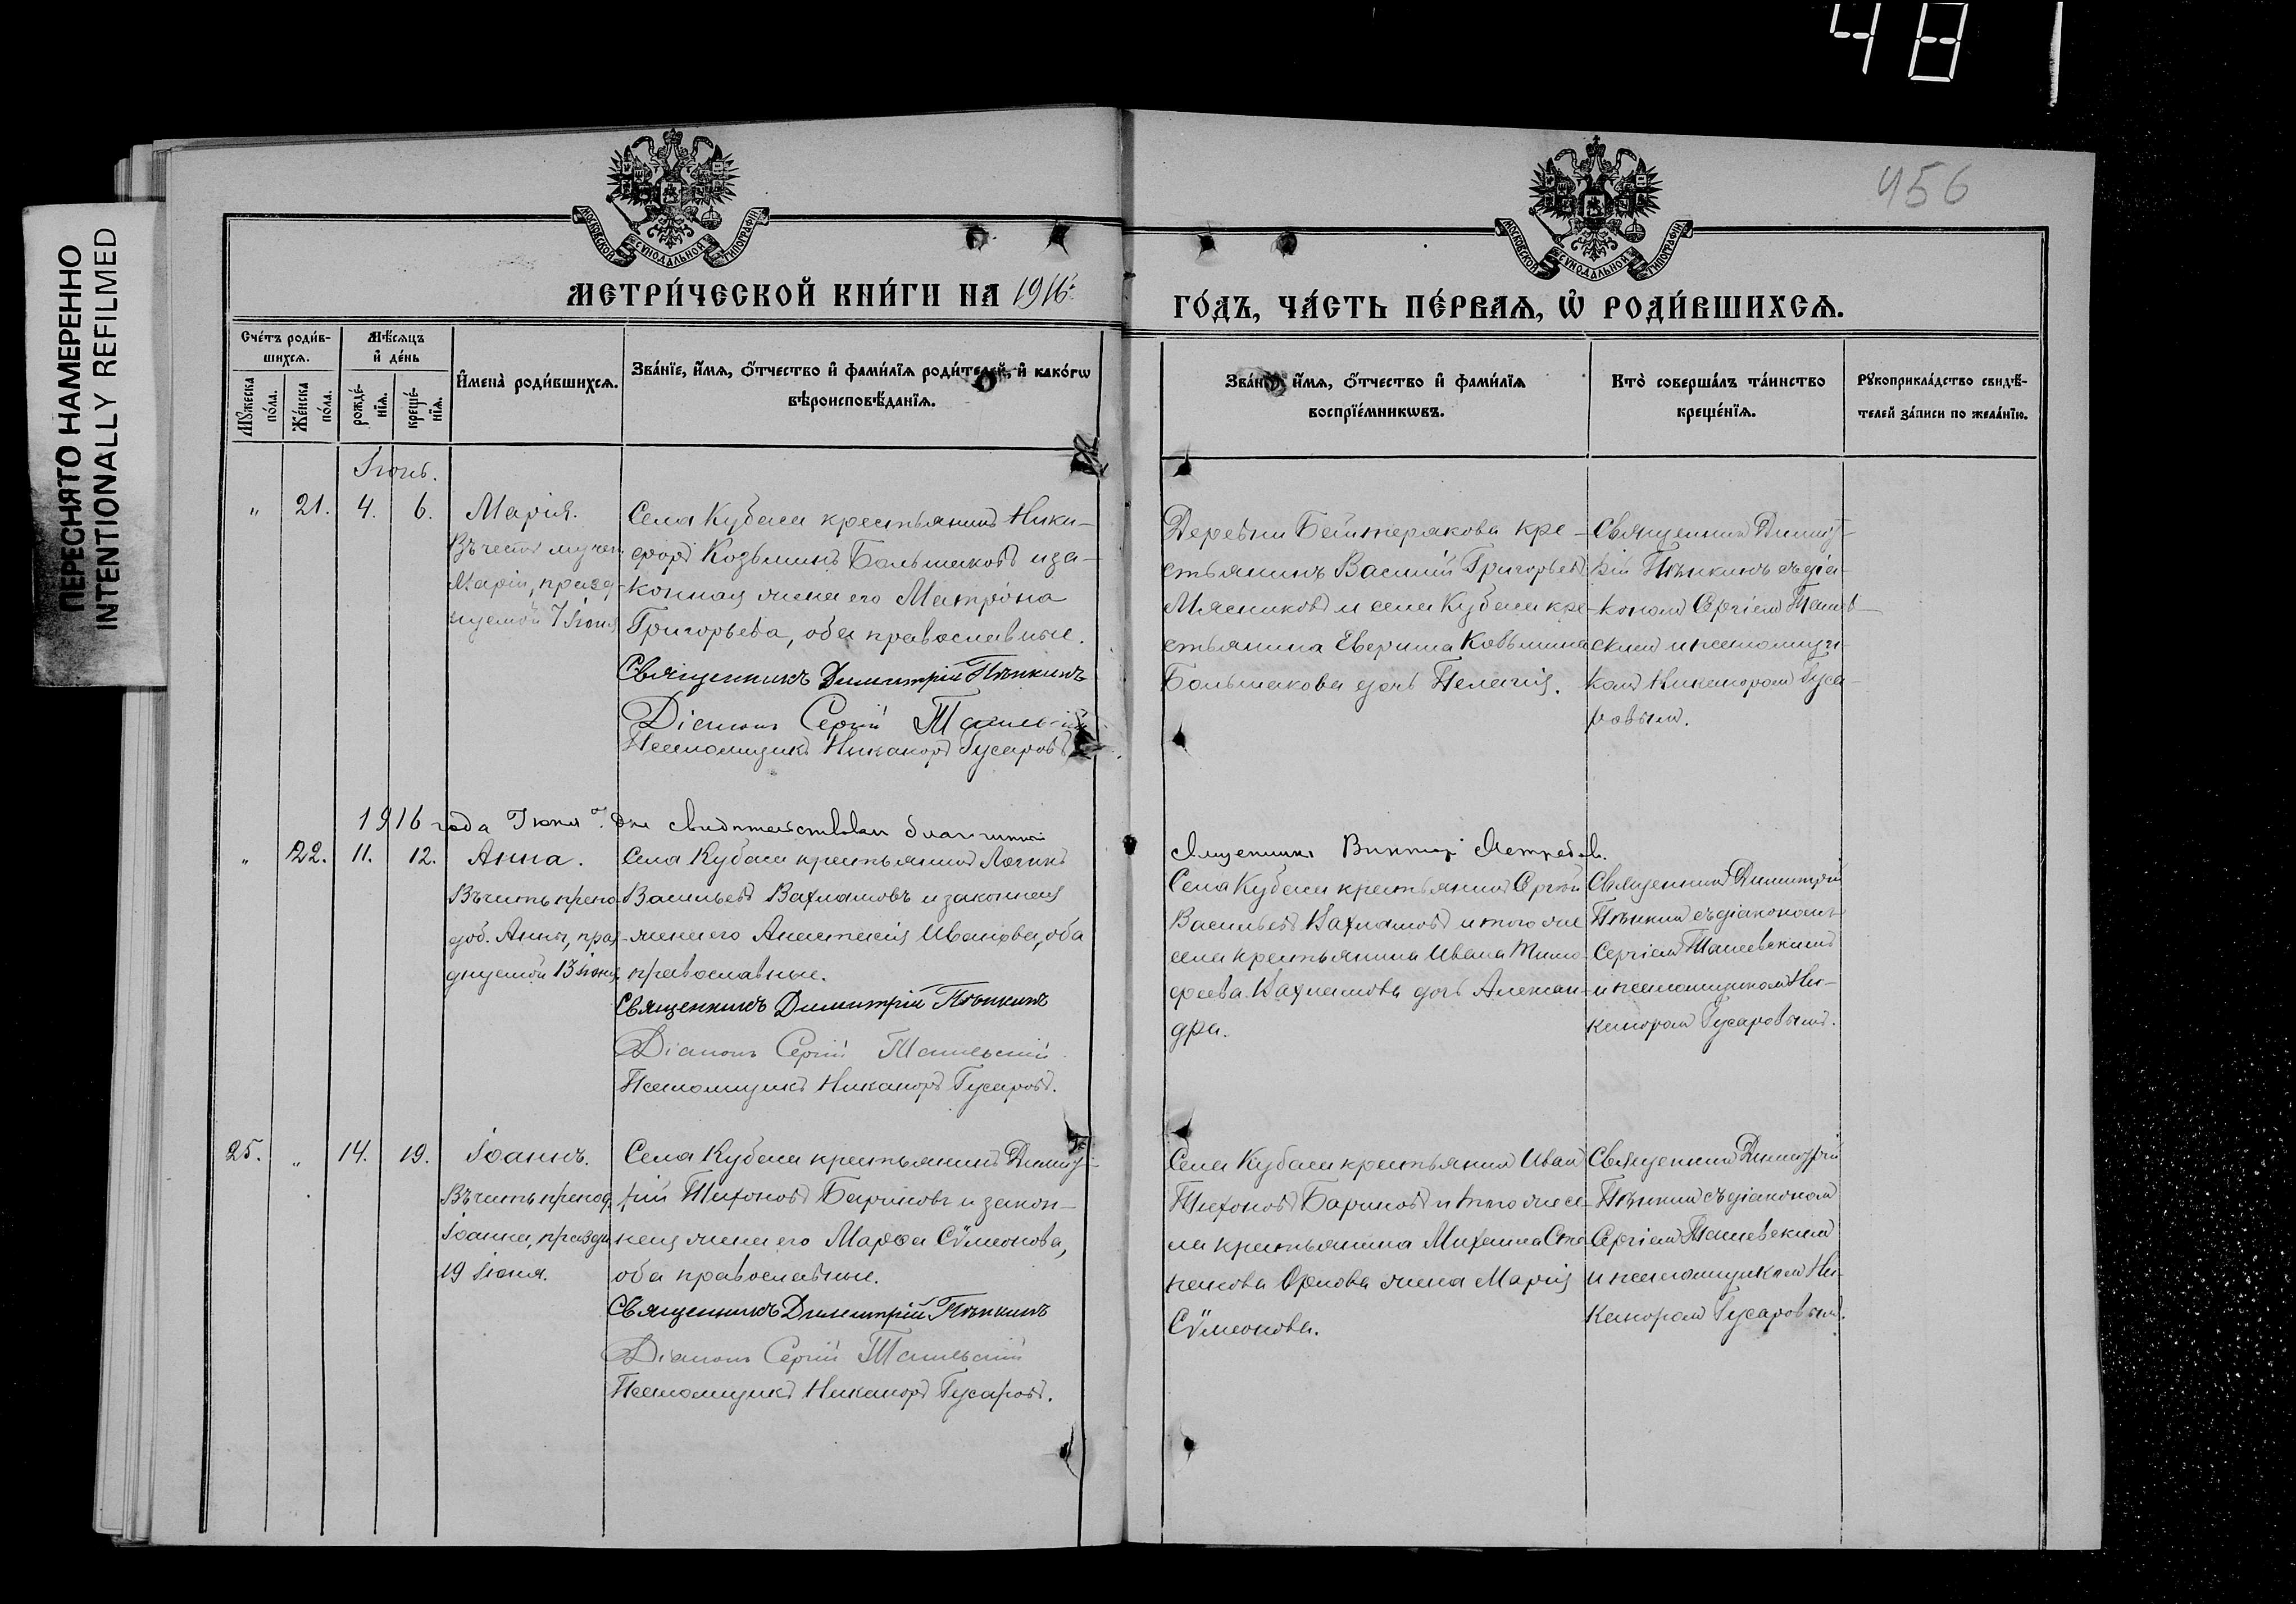 48
ПЕРЕСНЯТО НАМЕРЕННО
INTENTIONALLY REFILMED
456
МОСКОВСКОЙ СѴНОДАЛЬНОЙ ТИПОГРАФІИ
МОСКОВСКОЙ СѴНОДАЛЬНОЙ ТИПОГРАФІИ
МЕТРИ́ЧЕСКОЙ КНИ́ГИ НА 1916 г.
ГО́ДЪ, ЧА́СТЬ ПЕ́РВАѦ, Ѽ РОДИ́ВШИХСѦ.
Сче́тъ роди́в-
шихсѧ.
Мꙋ́жеска по́ла.
Же́нска по́ла.
Мѣ́сѧцъ
и҆ де́нь
рожде́-
нїѧ.
креще́-
нїѧ.
И҆мена̀ роди́вшихсѧ.
Зва́нїе, и҆́мѧ, ѻ҆́тчество и҆ фами́лїѧ роди́телей, и҆ како́гѡ
вѣроисповѣ́данїѧ.
Зва́нїе, и҆́мѧ, ѻ҆́тчество и҆ фами́лїѧ
воспрїе́мникѡвъ.
Кто̀ соверша́лъ та́инство
креще́нїѧ.
Рꙋкоприкла́дство свидѣ́-
телей за́писи по жела́нїю.
Іюнь.
" 21. 4. 6. Марія.
Въ честь мучен.
Маріи, празд-
нуемой 7 іюня
Села Кубаса крестьянинъ Ники-
форъ Козьминъ Большаковъ и за-
конная жена его Матрона
Григорьева, оба православные.
Священникъ Димитрій Пѣнкинъ
Діаконъ Сергій
Псаломщикъ Никаноръ Гусаровъ
Деревни Бейтерякова кре-
стьянинъ Василій Григорьевъ
Мясниковъ и села Кубаса кре-
стьянина Козьмина
Большакова дочь Пелагія.
Священникъ Димит-
рій Пѣнкинъ съ діа-
кономъ Сергіемъ
скимъ и псаломщи-
комъ Никаноромъ Гуса-
ровымъ.
1916 года Іюня дня свидѣтельствовалъ благочинный
священникъ Викторъ Ястребовъ.
" 22. 11. 12. Анна.
Въ честь препо-
доб. Анны, праз-
днуемой 13 іюня
Села Кубаса крестьянинъ Логинъ
Васильевъ Вахламовъ и законная
жена его Анастасія Иванова, оба
православные.
Священникъ Димитрій Пѣнкинъ
Діаконъ Сергій
Псаломщикъ Никаноръ Гусаровъ.
Села Кубаса крестьянинъ Сергѣй
Васильевъ Вахламовъ и того же
села крестьянина Ивана Тимо-
феева Вахламова дочь Алексан-
дра.
Священникъ Димитрій
Пѣнкинъ съ діакономъ
Сергіемъ
и псаломщикомъ Ни-
каноромъ Гусаровымъ.
25. " 14. 19. Іоаннъ.
Въ честь препод.
Іоанна, праздн.
19 іюня.
Села Кубаса крестьянинъ Димит-
рій Тихоновъ Бариновъ и закон-
ная жена его Марѳа Сѷмеонова,
оба православные.
Священникъ Димитрій Пѣнкинъ
Діаконъ Сергій
Псаломщикъ Никаноръ Гусаровъ.
Села Кубаса крестьянинъ Иванъ
Тихоновъ Бариновъ и того же се-
ла крестьянина Михаила Сте-
панова Орлова жена Марія
Сѷмеонова.
Священникъ Димитрій
Пѣнкинъ съ діакономъ
Сергіемъ
и псаломщикомъ Ни-
каноромъ Гусаровымъ.